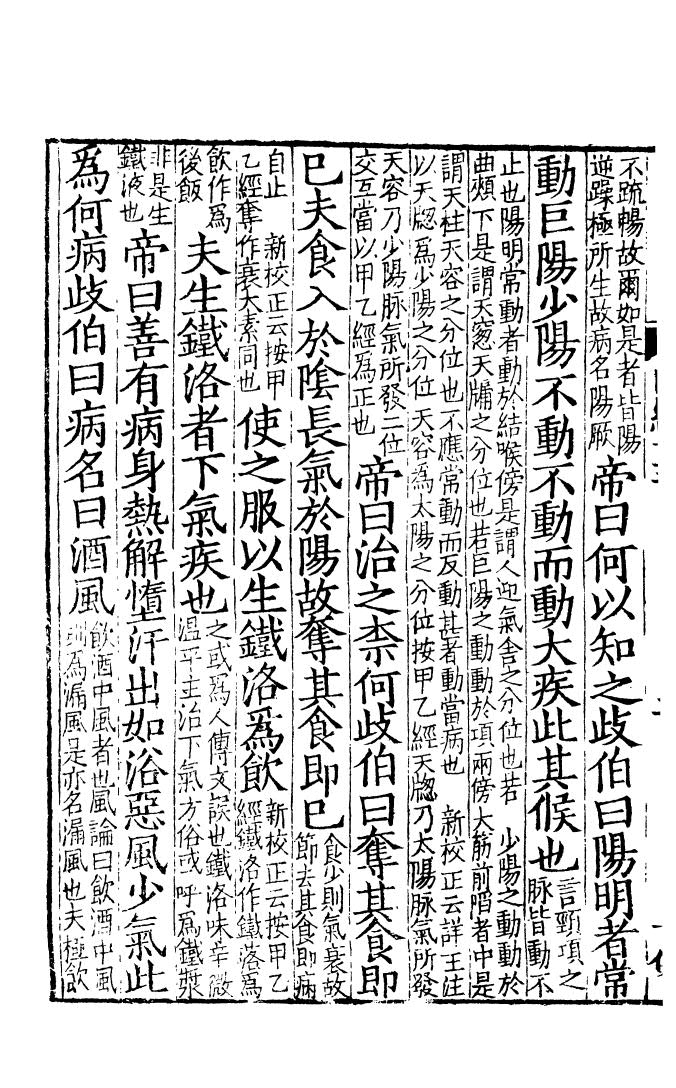 不疏暢故爾如是者皆陽
逆躁極所生故病名陽厥
帝曰何以知之歧伯曰陽明者常
動巨陽少陽不動不動而動大疾此其候也
言頸項之
脉皆動不
止也陽明常動者動於結喉傍是謂人迎氣舍之分位也若 少陽之動動於
曲頰下是謂天窻天牖之分位也若巨陽之動動於項兩傍大筋前陷者中是
謂天柱天容之分位也不應常動而反動甚者動當病也 新校正云詳王注
以天牕為少陽之分位天容為太陽之分位按甲乙經天牕乃太陽脉氣所發
天容乃少陽脉氣所發二位
交互當以甲乙經爲正也
帝曰治之柰何歧伯曰奪其食即
已夫食入於陰長氣於陽故奪其食即已
食少則氣衰故
節去其食即病
自止 新校正云按甲
乙經奪作衰太素同也
使之服以生鐵洛爲飲
新校正云按甲乙
經鐵洛作鐵落爲
飲作爲
後飯
夫生鐵洛者下氣疾也
之或爲人傳文誤也鐵洛味辛微
温平主治下氣方俗或呼爲鐵漿
非是生
鐵液也
帝曰善有病身熱解墯汗出如浴惡風少氣此
爲何病歧伯曰病名曰酒風
飲酒中風者也風論曰飲酒中風
則為漏風是亦名漏風也夫極飲